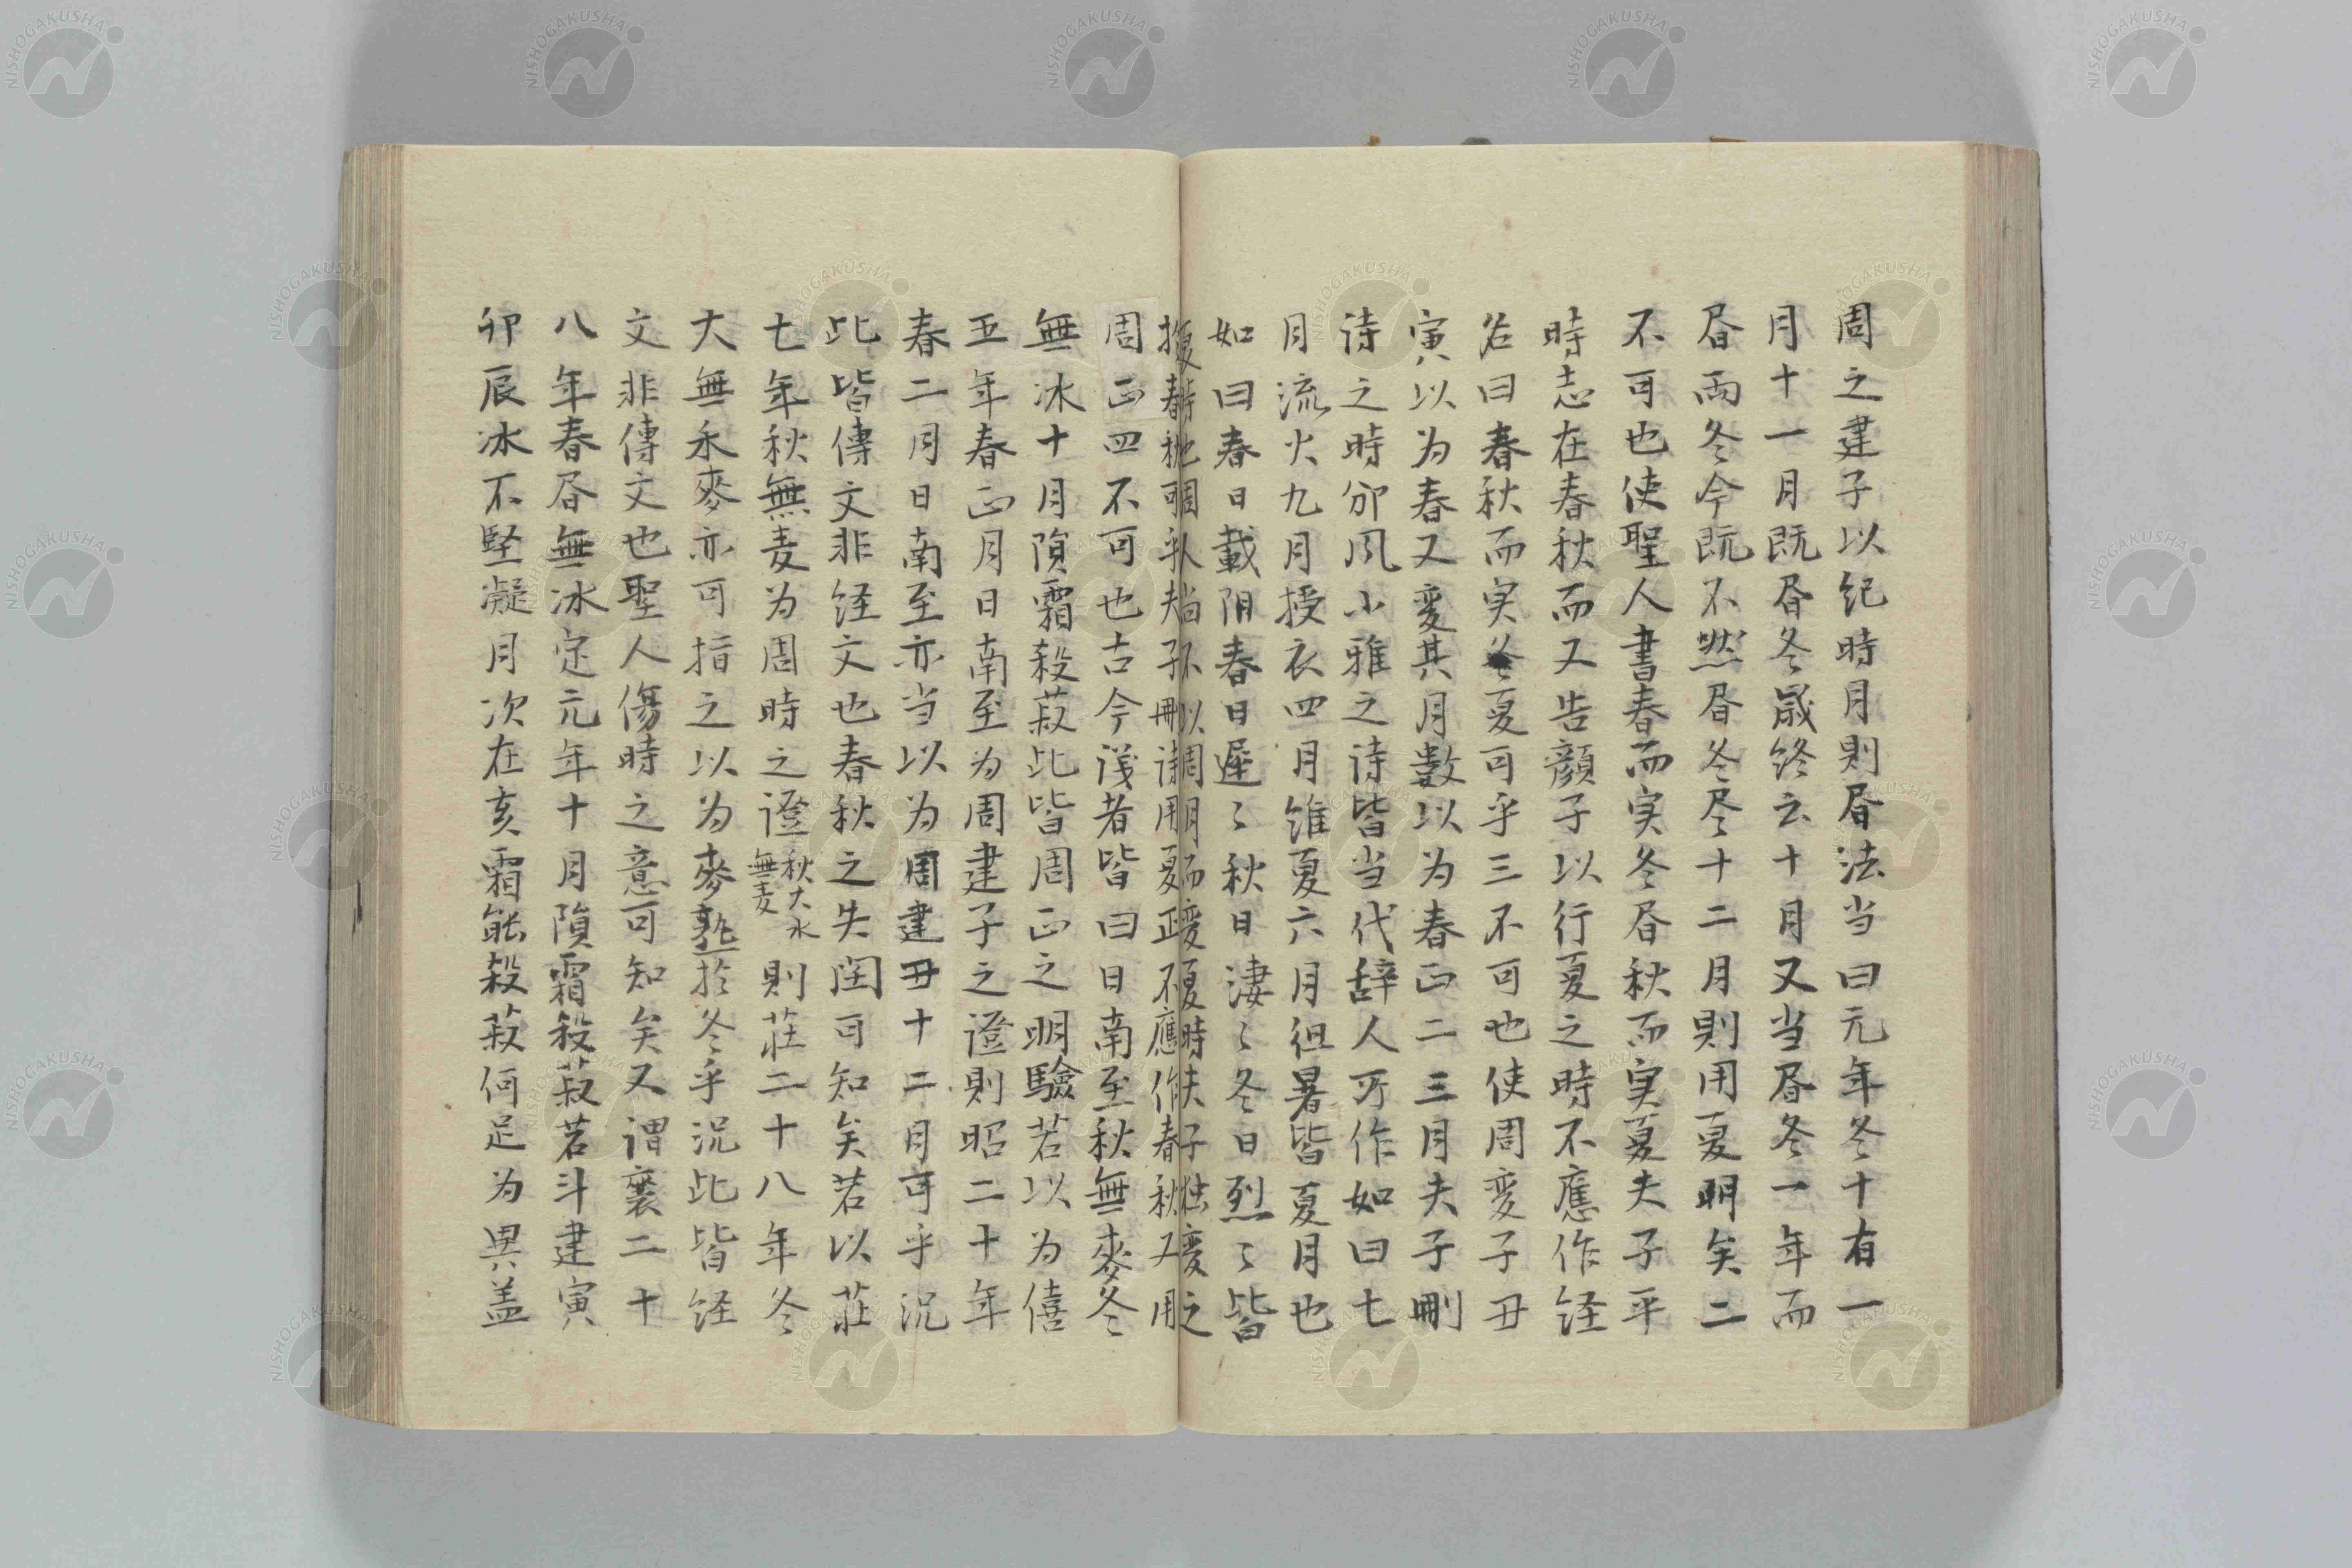 周之建子以紀時月則昏法当曰元年冬十有一
月十一月既昏冬歳終云十月又当昏冬一年而
昏両冬今既不然昏冬尽十二月則用夏明矣二
不可也使聖人書春而実冬昏秋而実夏夫子平
時志在春秋而又告顔子以行夏之時不應作経
名曰春秋而実冬夏可乎三不可也使周変子丑
寅以为春又変其月數以为春正二三月夫子刪
诗之時邠風小雅之诗皆当代辞人所作如曰七
月流火九月授衣四月維夏六月徂暑皆夏月也
如曰春日載阴春日遲〻秋日凄〻冬日烈〻皆
夏時也人尚不以周月而変夏時夫子独変之
春秋可乎夫子刪诗用夏正不應作春秋又用
周正四不可也古今浅者皆曰日南至秋無麥冬
無冰十月隕霜殺菽此皆周正之明驗若以为僖
五年春正月日南至为周建子之證則昭二十年
春二月日南至亦当以为周建丑十二月可乎況
此皆傳文非経文也春秋之失閏可知矣若以荘
七年秋無麦为周時之證秋大水無麦則荘二十八年冬
大無禾麥亦可指之以为麥熟於冬乎況此皆経
文非傳文也聖人傷時之意可知矣又謂襄二十
八年春昏無冰定元年十月隕霜殺菽若斗建寅
卯辰冰不堅凝月次在亥霜能殺菽何足为異盖